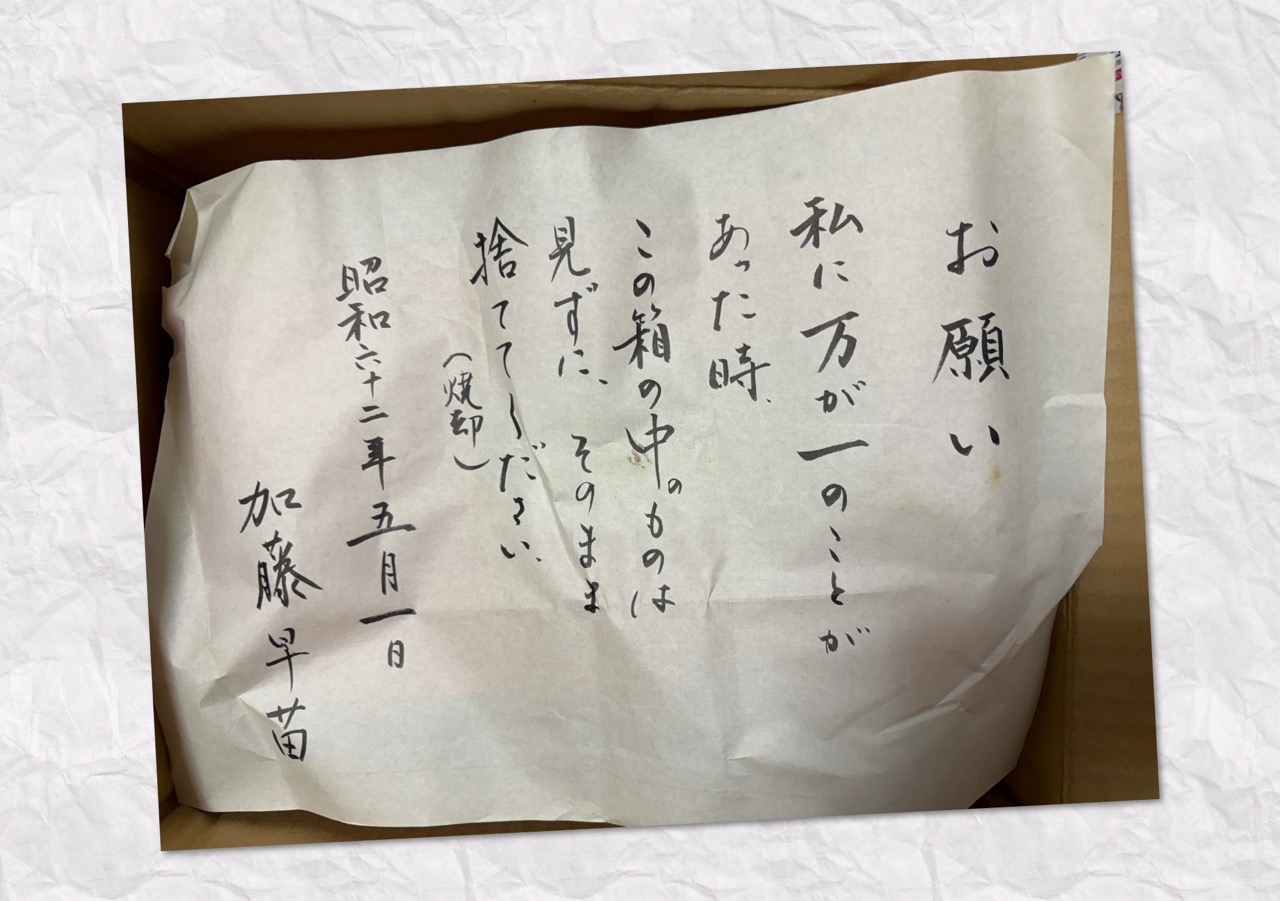 お願い
私に万が一のことが
あった時、
この箱の中のものは
見ずに、そのまま
捨ててください、
（焼却）
昭和六十二年五月一日
加藤早苗